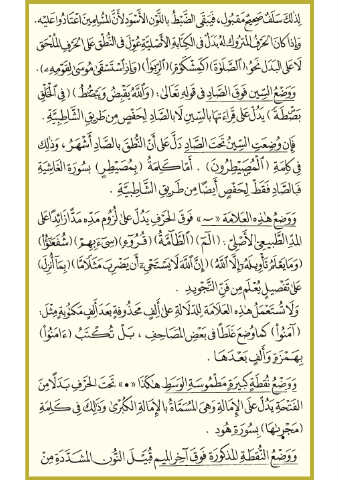 لِذَلكَ سَلَفٌ صَحِيحٌ مَقبُول، فَبَقِيَ الضَّبْطُ بِاللَّوْنِ الأَسْوَدِ لأَنَّ المُسْلِمِينَ اعْتَادُوا عَلَيْه.
وَإِذَا كَانَ الحَرْفُ المَتْرُوكُ لَهُ بَدَلٌ فِي الكِتَابَةِ الأَصْلِيَّةِ عُوِّلَ فِي النُّطْقِ عَلَى الحَرْفِ المُلْحَقِ
لَا عَلَى البَدَلِ نَحْوُ (ٱلصَّلَوٰةَ) (كَمِشْكَوٰةٍ) (ٱلرِّبَوٰاْ) (وَإِذِ ٱسْتَسْقَىٰ مُوسَىٰ لِقَوْمِهِۦ).
وَوَضْعُ السِّينِ فَوْقَ الصَّادِ فِي قَوْلِهِ تَعَالَىٰ: (وَٱللَّهُ يَقْبِضُ وَيَبْصُۜطُ) (فِي ٱلْخَلْقِ
بَصْۜطَةً) يَدُلُّ عَلَى قِرَاءَتِهَا بِالسِّينِ لَا بِالصَّادِ لِحَفْصٍ مِن طَرِيقِ الشَّاطِبِيَّةِ.
فَإِن وُضِعَتِ السِّينُ تَحْتَ الصَّادِ دَلَّ عَلَى أَنَّ النُّطْقَ بِالصَّادِ أَشْهَرُ، وَذَلِكَ
فِي كَلِمَةِ (ٱلْمُصَۣيْطِرُونَ). أَمَّا كَلِمَةُ (بِمُصَيْطِرٍ) بِسُورَةِ الغَاشِيَةِ
فَبِالصَّادِ فَقَطْ لِحَفْصٍ أَيْضًا مِن طَرِيقِ الشَّاطِبِيَّةِ.
وَوَضْعُ هَٰذِهِ العَلَامَةِ «ٓ» فَوْقَ الحَرْفِ يَدُلُّ عَلَىٰ لُزُومِ مَدِّهِ مَدًّا زَائِدًا عَلَى
المَدِّ الطَّبِيعِيِّ الأَصْلِيِّ: (الٓمٓ) (ٱلطَّآمَّةُ) (قُرُوٓءٍ) (سِيٓءَ بِهِمْ) (شُفَعَٰٓؤُاْ)
(وَمَا يَعْلَمُ تَأْوِيلَهُۥٓ إِلَّا ٱللَّهُ) (إِنَّ ٱللَّهَ لَا يَسْتَحْيِۦٓ أَن يَضْرِبَ مَثَلًا مَّا) (بِمَآ أُنزِلَ)
عَلَىٰ تَفْصِيلٍ يُعْلَمُ مِن فَنِّ التَّجْوِيدِ.
وَلَا تُسْتَعْمَلُ هَٰذِهِ العَلَامَةُ لِلدَّلَالَةِ عَلَىٰ أَلِفٍ مَحْذُوفَةٍ بَعْدَ أَلِفٍ مَكْتُوبَةٍ مِثْلَ:
(آمَنُواْ) كَمَا وُضِعَ غَلَطًا فِي بَعْضِ المَصَاحِفِ، بَلْ تُكْتَبُ (ءَامَنُواْ)
بِهَمْزَةٍ وَأَلِفٍ بَعْدَهَا.
وَوَضْعُ نُقْطَةٍ كَبِيرَةٍ مَطْمُوسَةِ الوَسَطِ هَكَذَا «•» تَحْتَ الحَرْفِ بَدَلًا مِنَ
الفَتْحَةِ يَدُلُّ عَلَىٰ الإِمَالَةِ وَهِيَ المُسَمَّاةُ بِالإِمَالَةِ الكُبْرَىٰ وَذَلِكَ فِي كَلِمَةِ
(مَجْر۪ىٰهَا) بِسُورَةِ هُودٍ.
وَوَضْعُ النُّقْطَةِ المَذْكُورَةِ فَوْقَ آخِرِ المِيمِ قُبَيْلَ النُّونِ المُشَدَّدَةِ مِنْ